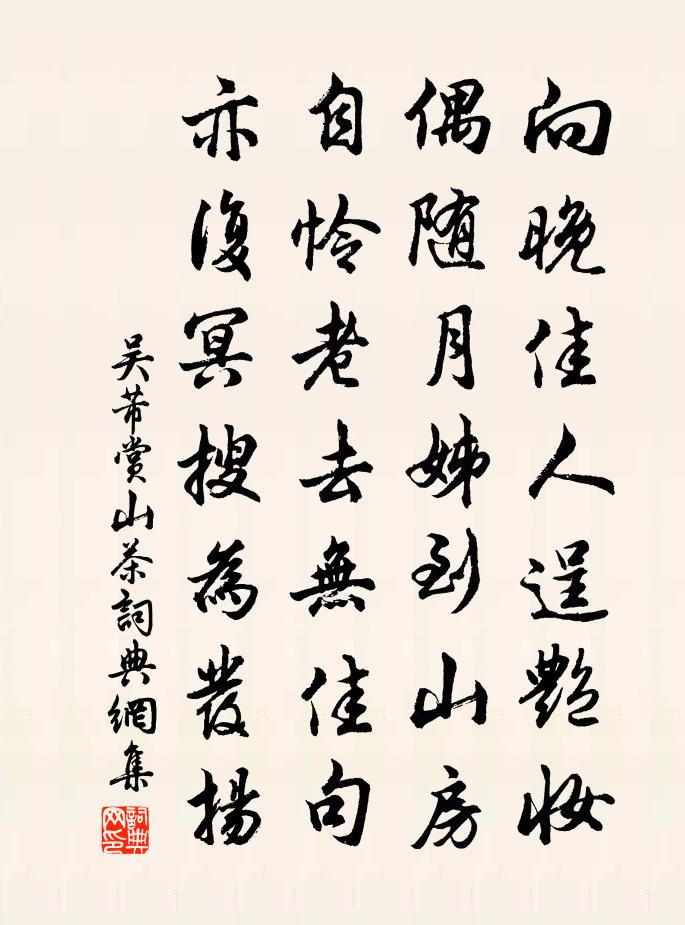 向晚佳人逞艷妝
偶随月姊到山房
自怜老去無佳句
亦復冥搜為發揚
吳芾賞山茶詞典網集
詞典網印